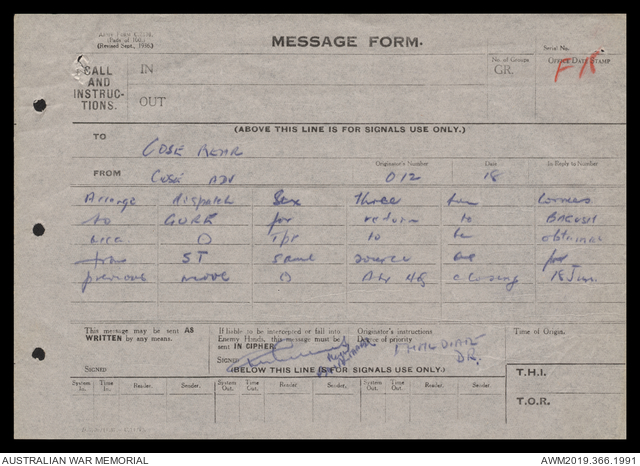 Army Form C.2128.
(Pads of 100.)
(Revised Sept., 1936.)
MESSAGE FORM.
Serial No.
CALL AND INSTRUCTIONS.
IN
No. of Groups
GR.
OFFICE DATE STAMP
OUT
(ABOVE THIS LINE IS FOR SIGNALS USE ONLY.)
TO
COSÉ REAR
Originator's Number
Date
In Reply to Number
FROM
COSÉ ADV
012
18
Arrange dispatch three
to for return to BAGUSH
area O tpt to be obtained
from ST same source as for
previous move O closing 18 Jun.
This message may be sent AS WRITTEN by any means.
If liable to be intercepted or fall into Enemy Hands, this message must be sent IN CIPHER.
Originator's instructions
Degree of priority
Time of Origin.
IMMEDIATE
DR.
SIGNED
SIGNED
(BELOW THIS LINE IS FOR SIGNALS USE ONLY.)
T.H.I.
System In Time In Reader. Sender. System Out Time Out Reader. Sender. System Out Time Out Reader. Sender.
T.O.R.
AUSTRALIAN WAR MEMORIAL
AWM2019.366.1991